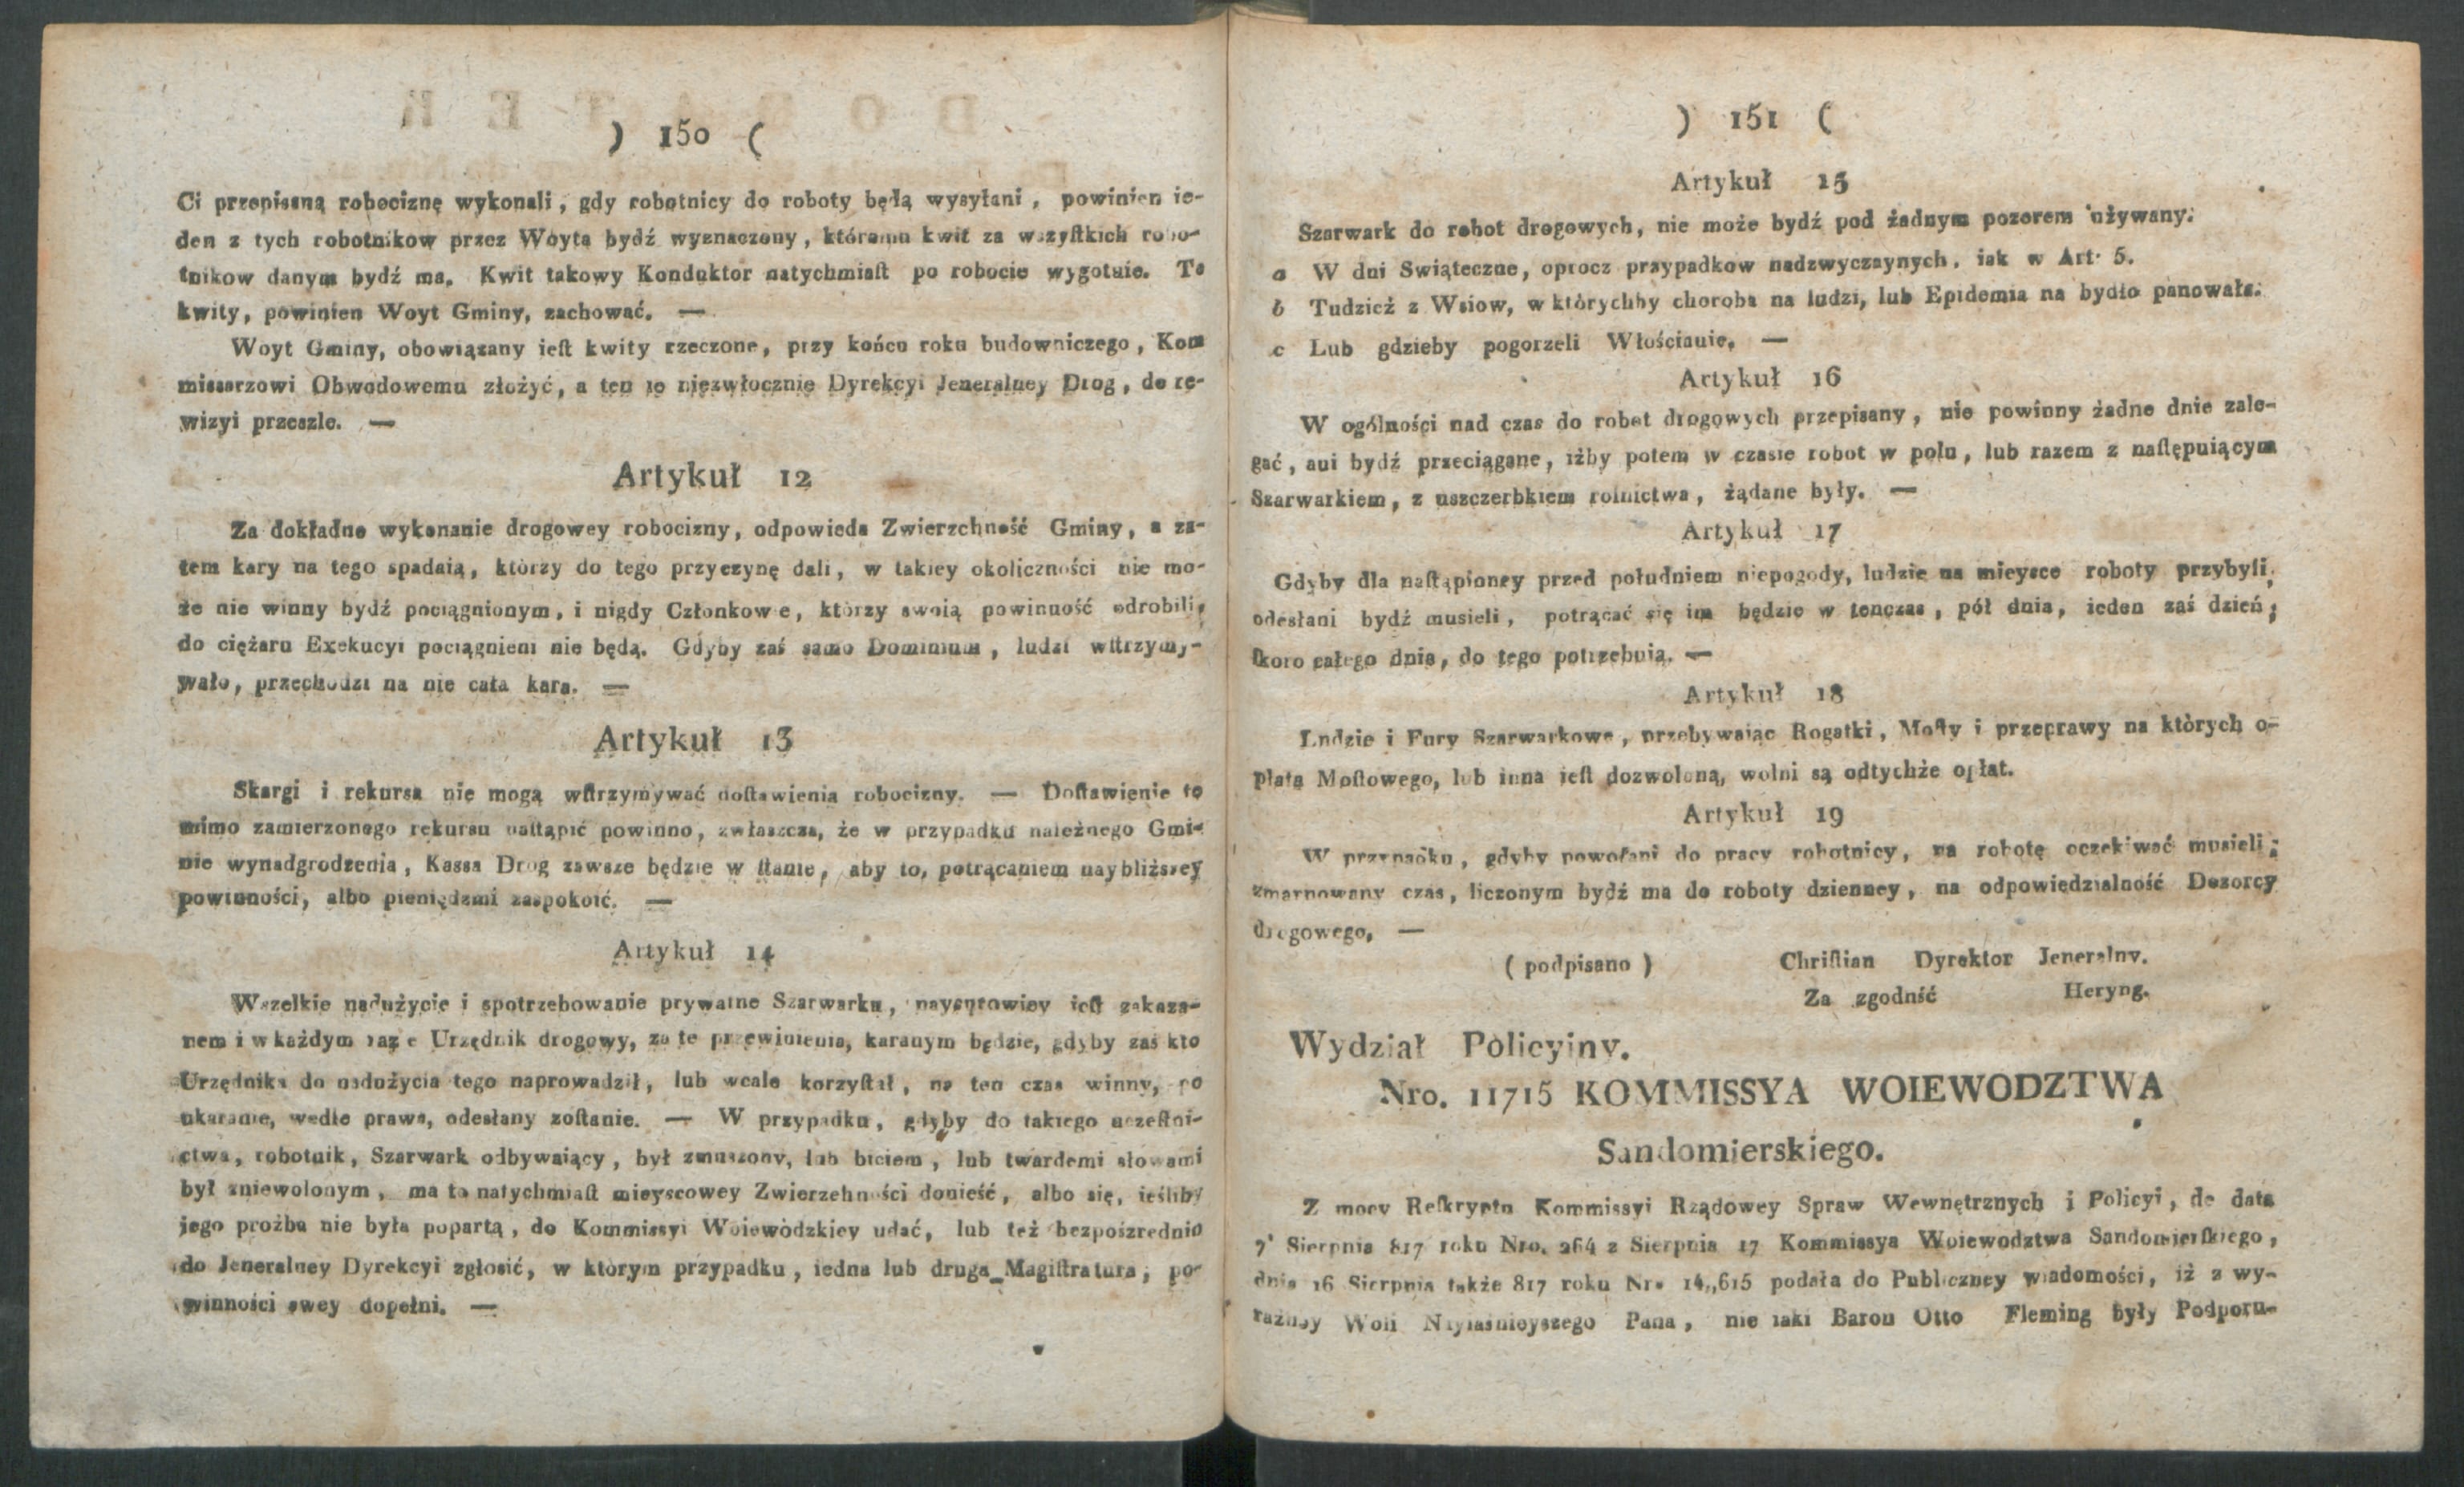 ) 150 (
Ci przepisaną robociznę wykonali, gdy robotnicy do roboty będą wysyłani, powinien ie-
den z tych robotnikow przez Woyta bydź wyznaczony, któremu kwit za wszyſtkich robo-
tnikow danym bydź ma. Kwit takowy Konduktor natychmiaſt po robocie wygotuie. Te
kwity, powinien Woyt Gminy, zachować. —
Woyt Gminy, obowiązany ieſt kwity rzeczone, przy końcu roku budowniczego, Kom
missarzowi Obwodowemu złożyć, a ten ie niezwłocznie Dyrekcyi Jeneralney Drog, do re-
wizyi przeszle. —
Artykuł 12
Za dokładne wykonanie drogowey robocizny, odpowieda Zwierzchność Gminy, a za-
tem kary na tego spadaią, ktòrzy do tego przyczynę dali, w takiey okoliczności nie mo-
że nie winny bydź pociągnionym, i nigdy Członkowie, ktòrzy swoią powinność odrobili,
do ciężaru Exekucyi pociągnieni nie będą. Gdyby zaś samo Dominium, ludzi wſtrzymy-
wało, przechodzi na nie cała kara. —
Artykuł 13
Skargi i rekursa nie mogą wſtrzymywać doſtawienia robocizny. — Doſtawienie to
mimo zamierzonego rekursu naſtąpić powinno, zwłaszcza, że w przypadku należnego Gmi-
nie wynadgrodzenia, Kassa Drog zawsze będzie w ſtanie, aby to, potrącaniem naybliższey
powinności, albo pieniędzmi zaspokoić. —
Artykuł 14
Wszelkie nadużycie i spotrzebowanie prywatne Szarwarku, naysurowiey ieſt zakaza-
nem i w każdym razie Urzędnik drogowy, za te przewinienia, karanym będzie, gdyby zaś kto
Urzędnika do nadużycia tego naprowadził, lub wcale korzyſtał, na ten czas winny, po
ukaranie, wedle prawa, odesłany zoſtanie. — W przypadku, gdyby do takiego uczeſtni-
ctwa, robotnik, Szarwark odbywaiący, był zmuszony, lub biciem, lub twardemi słowami
był zniewolonym, ma to natychmiaſt mieyscowey Zwierzchności donieść, albo się, ieśliby
jego proźba nie była popartą, do Kommissyi Woiewòdzkiey udać, lub też bezpośzrednio
do Jeneralney Dyrekcyi zgłosić, w ktòrym przypadku, iedna lub druga Magiſtratura, po-
winności swey dopełni. —
) 151 (
Artykuł 15
Szarwark do robot drogowych, nie może bydź pod żadnym pozorem używany.
a W dni Swiąteczne, oprocz przypadkow nadzwyczaynych, iak w Art. 5.
b Tudzież z Wsiow, w ktòrychby choroba na ludzi, lub Epidemia na bydło panowała.
c Lub gdzieby pogorzeli Włościanie. —
Artykuł 16
W ogólności nad czas do robot drogowych przepisany, nie powinny żadne dnie zale-
gać, ani bydź przeciągane, iżby potem w czasie robot w polu, lub razem z naſtępuiącym
Szarwarkiem, z uszczerbkiem rolnictwa, żądane były. —
Artykuł 17
Gdyby dla naſtąpioney przed południem niepogody, ludzie na mieysce roboty przybyli,
odesłani bydź musieli, potrącać się im będzie w tenczas, pół dnia, ieden zaś dzień,
ſkoro całego dnia, do tego potrzebuią. —
Artykuł 18
Ludzie i Fury Szarwarkowe, przebywaiąc Rogatki, Moſty i przeprawy na ktòrych o-
płata Moſtowego, lub inna ieſt dozwoloną, wolni są odtychże opłat.
Artykuł 19
W przypadku, gdyby powołani do pracy robotnicy, na robotę oczekiwać musieli;
zmarnowany czas, liczonym bydź ma do roboty dzienney, na odpowiędzialność Dozorcy
drogowego, —
( podpisano ) Chriſtian Dyrektor Jeneralny.
Za zgodnść Heryng.
Wydział Pòlicyiny.
Nro. 11715 KOMMISSYA WOIEWODZTWA
Sandomierskiego.
Z mocy Reſkryptu Kommissyi Rządowey Spraw Wewnętrznych i Policyi, de data
7 Sierpnia 817 roku Nro. 264 z Sierpnia 17 Kommissya Woiewodztwa Sandomierſkiego,
dnia 16 Sierpnia także 817 roku Nro 14,,615 podała do Publiczney wiadomości, iż z wy-
raźney Woli Nayiaśnieyszego Pana, nie iaki Baron Otto Fleming były Podporu-